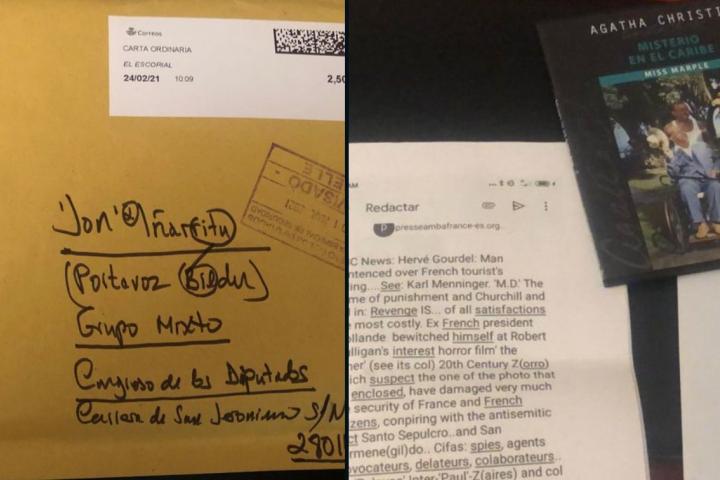 Correos
CARTA ORDINARIA
EL ESCORIAL
24/02/21 10:09
2,50
VISADO
'Jon' Iñarritu
(Portavoz Bildu)
Grupo Mixto
Congreso de los Diputados
Carrera de San Jeronimo S/N
2801
AGATHA CHRISTI
MISTERIO
EN EL CARIBE
MISS MARPLE
AM
Redactar
P presseambafrance-es.org
C News: Hervé Gourdel: Man
ntenced over French tourist's
ing....See: Karl Menninger. 'M.D.' The
me of punishment and Churchill and
l in: Revenge IS... of all satisfactions
most costly. Ex French president
llande bewitched himself at Robert
lligan's interest horror film' the
her' (see its col) 20th Century Z(orro)
ich suspect the one of the photo that
enclosed, have damaged very much
security of France and French
zens, conpiring with the antisemitic
ct Santo Sepulcro..and San
rmene(gil)do.. Cifas: spies, agents
vocateurs, delateurs, colaborateurs..
Inter-'Paul'-Z(aires) and col